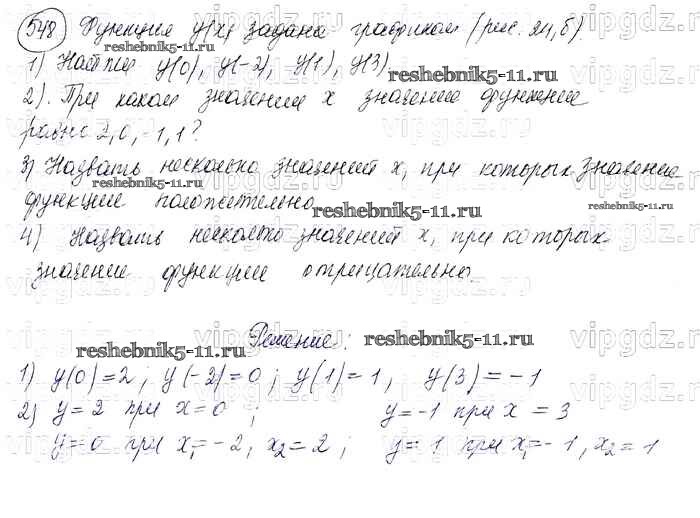 548 Функция y(x) задана графиком (рис. 24, б)
1) Найти y(0), y(-2), y(1), y(3)
2). При каком значении x значение функции
равно 2, 0, -1, 1?
3) Назвать несколько значений x, при которых значение
функции положительно
4) Назвать несколько значений x, при которых
значение функции отрицательно.
Решение:
1) y(0)=2; y(-2)=0; y(1)=1, y(3)=-1
2) y=2 при x=0; y=-1 при x=3
y=0 при x₁=-2, x₂=2; y=1 при x₁=-1, x₂=1
reshebnik5-11.ru
vipgdz.ru